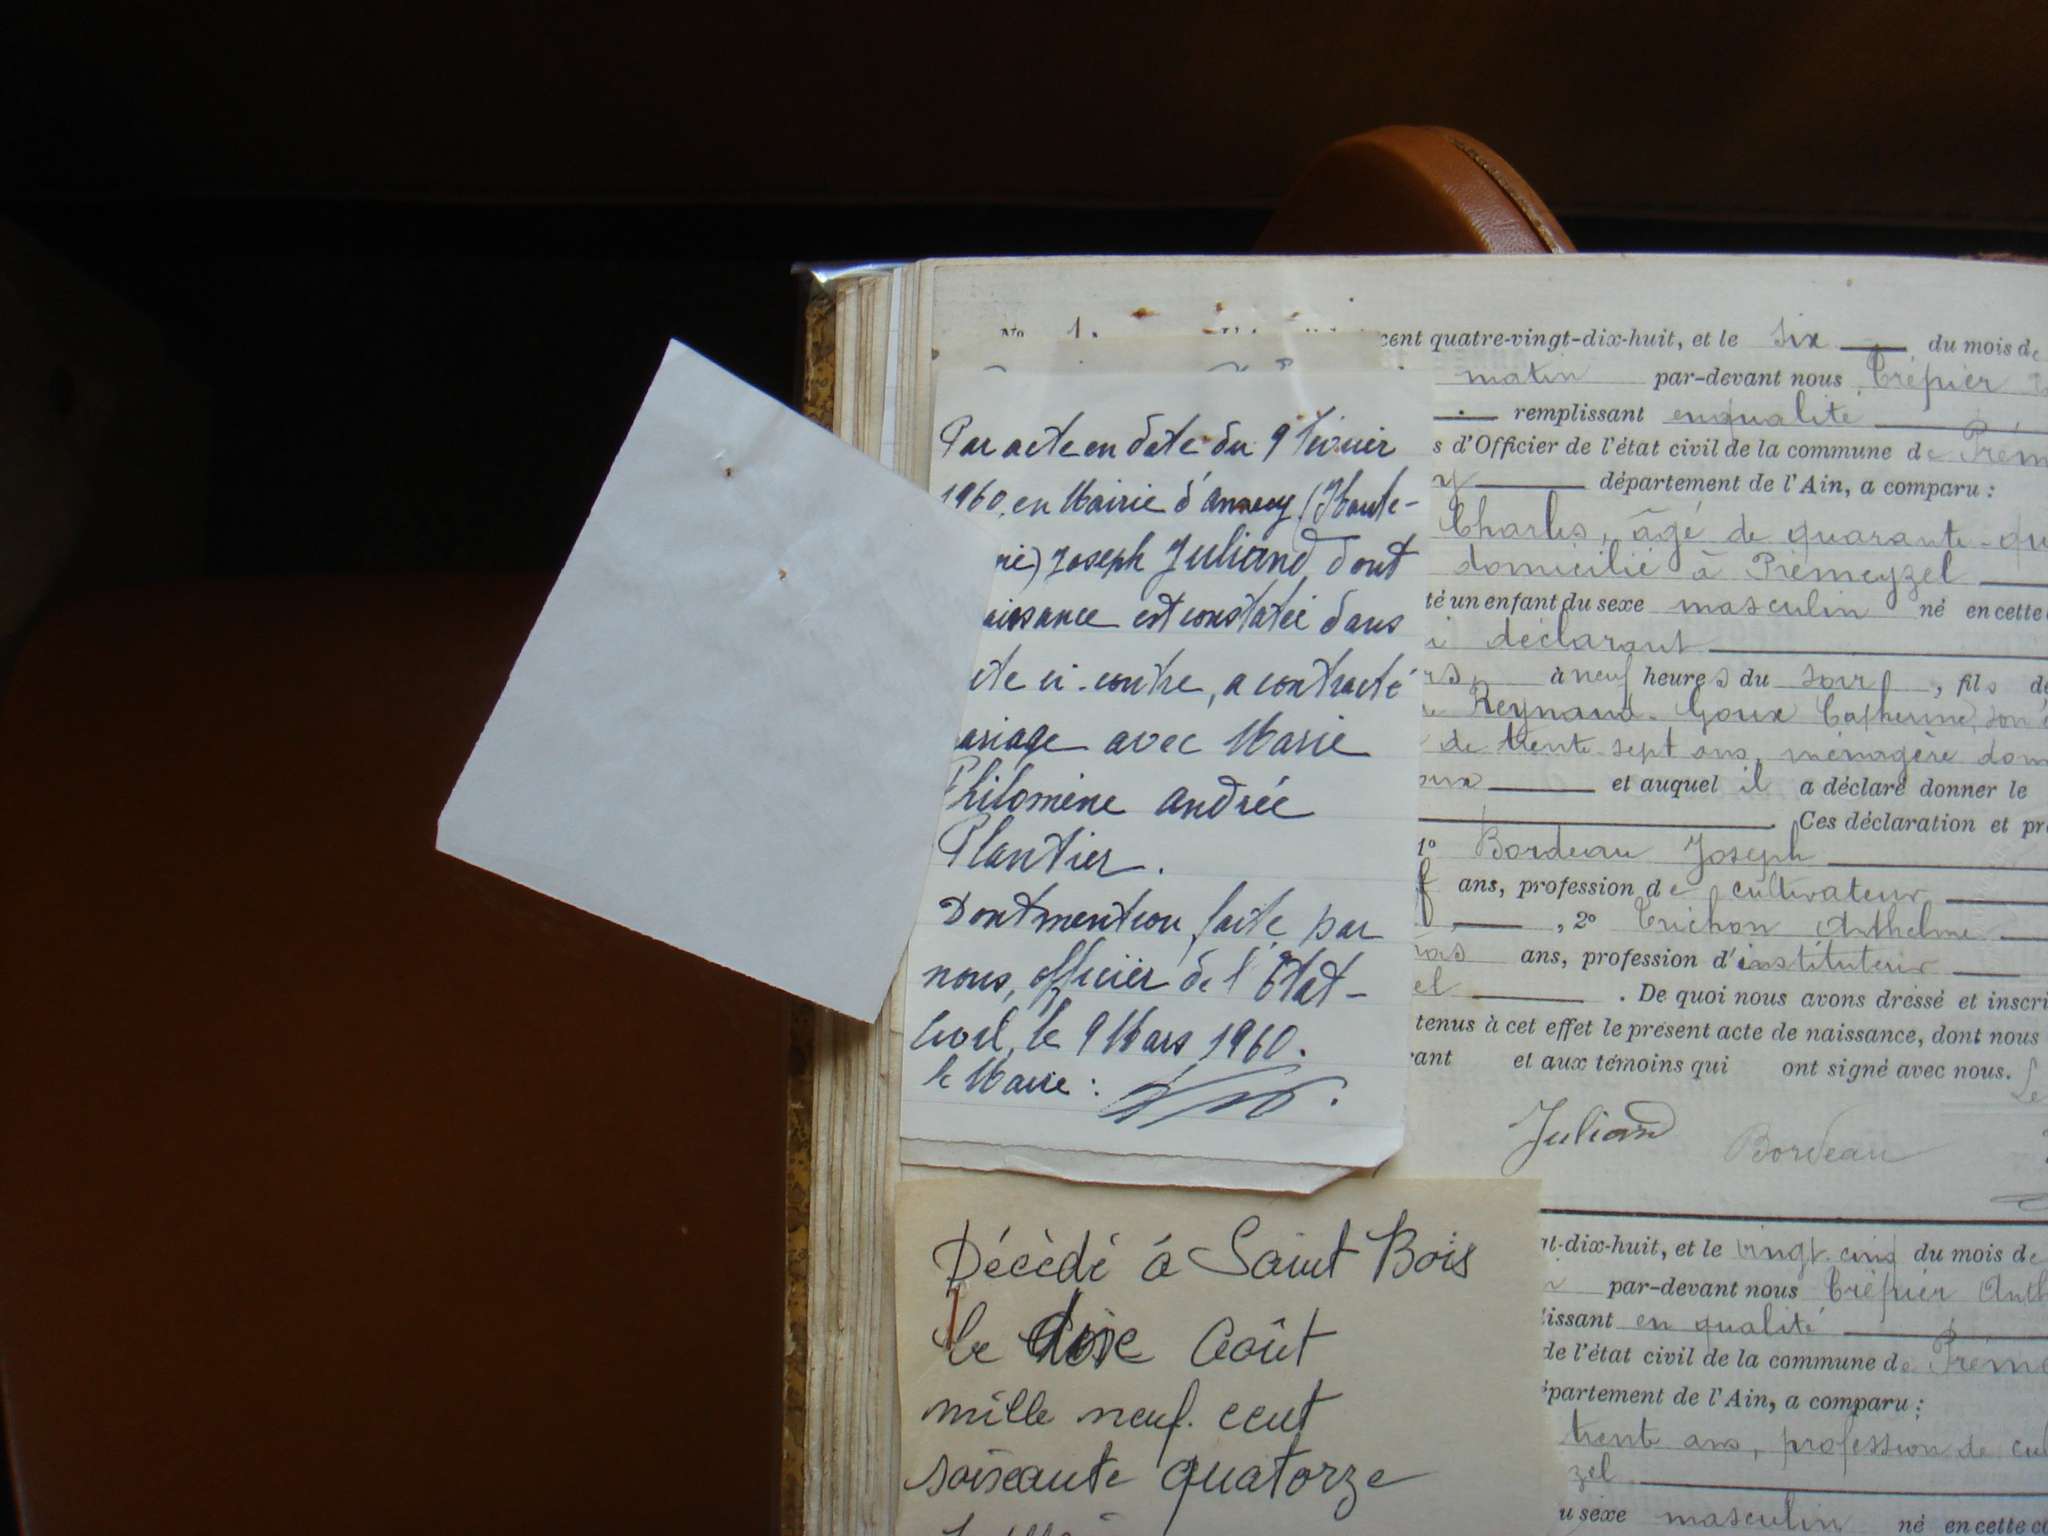 No 1.
cent quatre-vingt-dix-huit, et le six du mois de
matin par-devant nous Trépier
remplissant en qualité
s d'Officier de l'état civil de la commune de Prém
y département de l'Ain, a comparu :
Charles, âgé de quarante-qu
domicilié à Prémeyzel
té un enfant du sexe masculin né en cette
i déclarant
rs, à neuf heures du soir, fils de
Reynaud-Goux Catherine, son é
de trente sept ans, ménagère dom
oux et auquel il a déclaré donner le
Ces déclaration et pr
1º Bordeau Joseph
f ans, profession de cultivateur
, 2º Trichon Anthelme
rois ans, profession d'instituteur
el . De quoi nous avons dressé et inscri
tenus à cet effet le présent acte de naissance, dont nous
rant et aux témoins qui ont signé avec nous. Le
Juliand Bordeau
Par acte en date du 9 Février
1960, en Mairie d'Annecy (Haute-
oie) Joseph Juliand, dont
aissance est constatée dans
cte ci-contre, a contracté
ariage avec Marie
Philomène Andrée
Plantier.
Dont mention faite par
nous, officier de l'Etat-
Civil, le 9 Mars 1960.
le Maire :
Décèdé à Saint Bois
le Août
mille neuf cent
soixante quatorze
gt-dix-huit, et le vingt-cinq du mois de
par-devant nous Trépier Anth
lissant en qualité
de l'état civil de la commune de Préme
épartement de l'Ain, a comparu :
trente ans, profession de cul
zel
u sexe masculin né en cette co